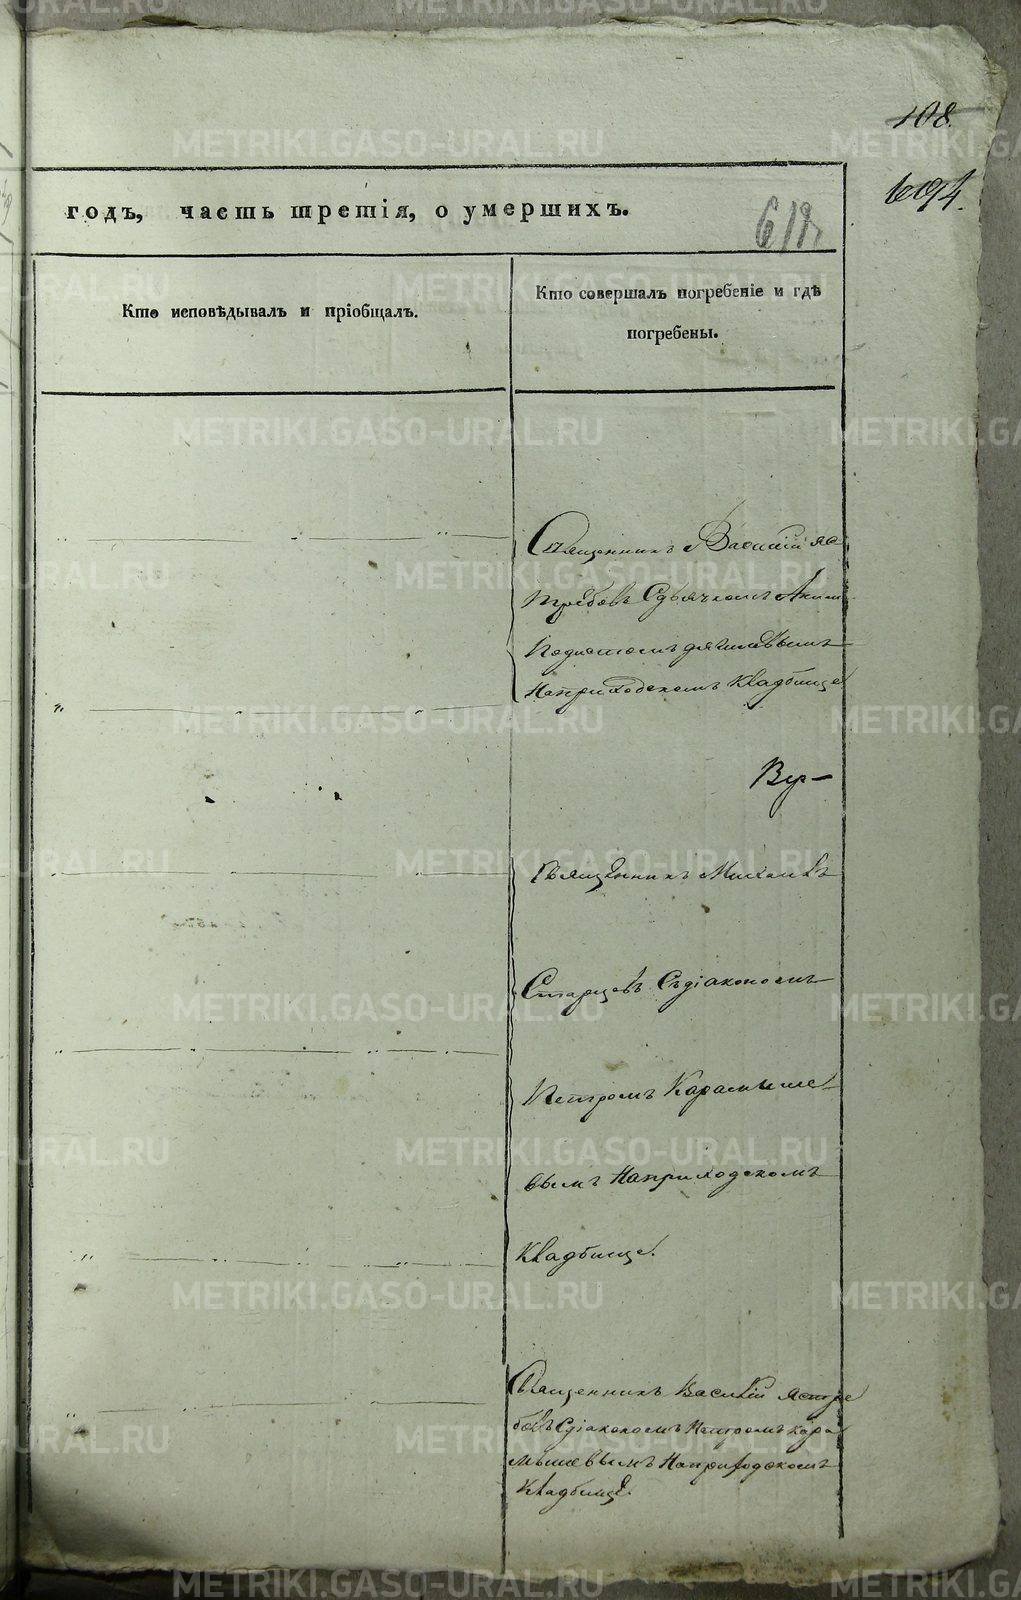 108.
годъ, часть третія, о умершихъ.
Кто исповѣдывалъ и пріобщалъ.
Кто совершалъ погребеніе и гдѣ
погребены.
Священникъ Василій Яс
требовъ Сдьячкомъ
Наприходскомъ Кладбище
Священникъ Михаилъ
Старцевъ Съдіакономъ
Петромъ Карамыше
вымъ Наприходскомъ
Кладбище.
Священникъ Василій Ястре
бовъ Сдіакономъ Петромъ Кара
мышевымъ Наприходскомъ
Кладбище.
METRIKI.GASO-URAL.RU